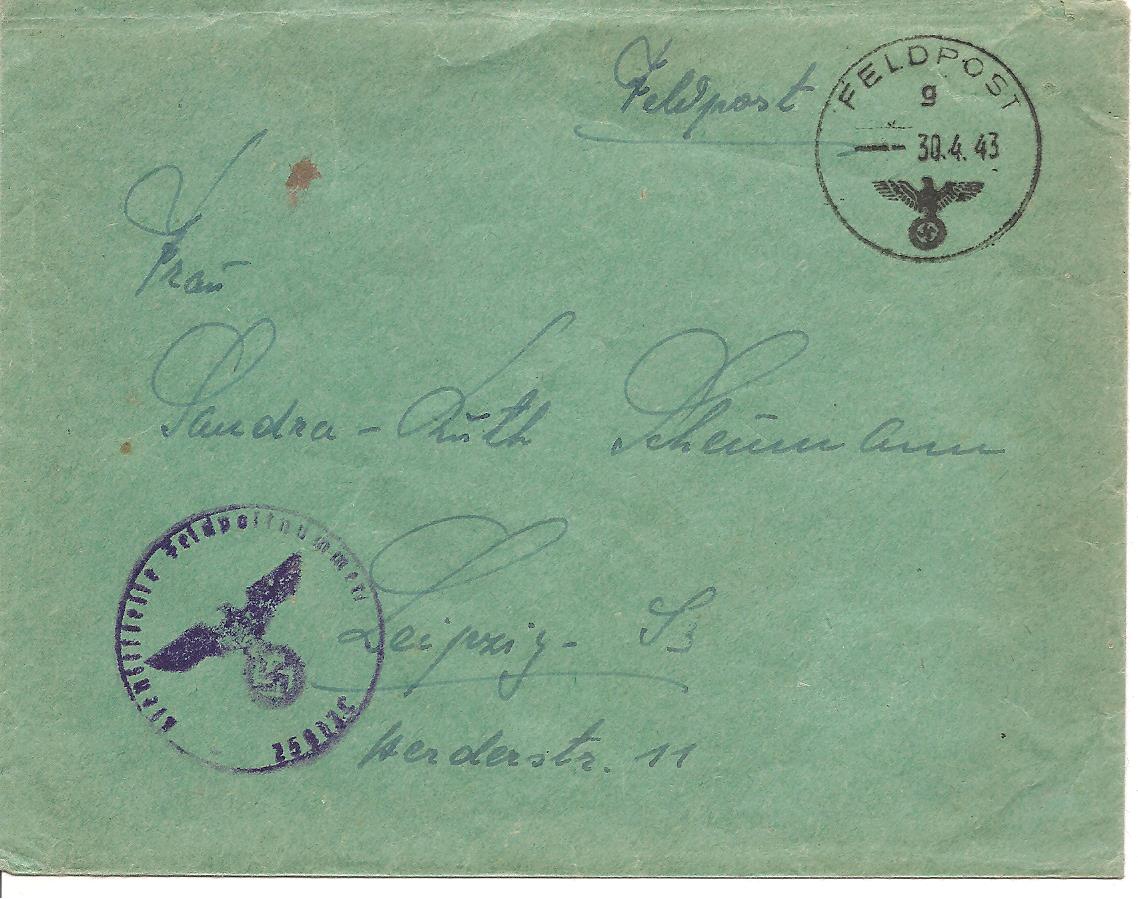 Feldpost
FELDPOST
g
30.4.43
Frau
Sandra-Ruth Scheumann
Dienststelle Feldpostnummer
Leipzig - S3
Herderstr. 11